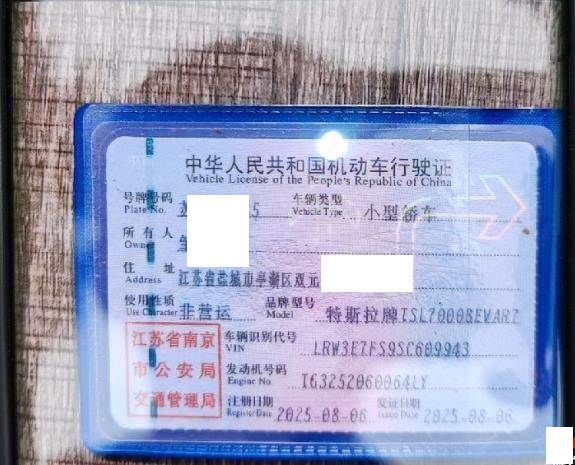 中华人民共和国机动车行驶证
Vehicle License of the People's Republic of China
号牌号码 苏 5 车辆类型 小型轿车
Plate No. Vehicle Type
所有人 邹
Owner
住址 江苏省盐城市亭湖区双元
Address
使用性质 非营运 品牌型号 特斯拉牌TSL7000BEVAR7
Use Character Model
江苏省南京
市公安局
交通管理局
车辆识别代号 LRW3E7FS9SC609943
VIN
发动机号码 TG3252060064LY
Engine No.
注册日期 2025-08-06 发证日期 2025-08-06
Register Date Issue Date